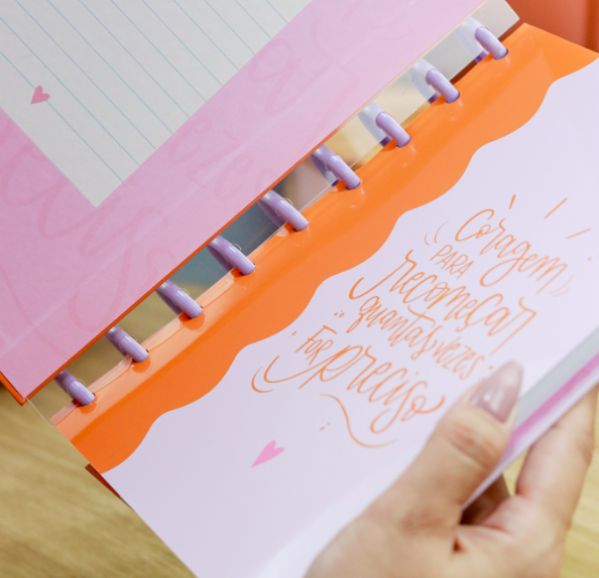 Coragem
PARA
recomeçar
quantas vezes
FOR preciso